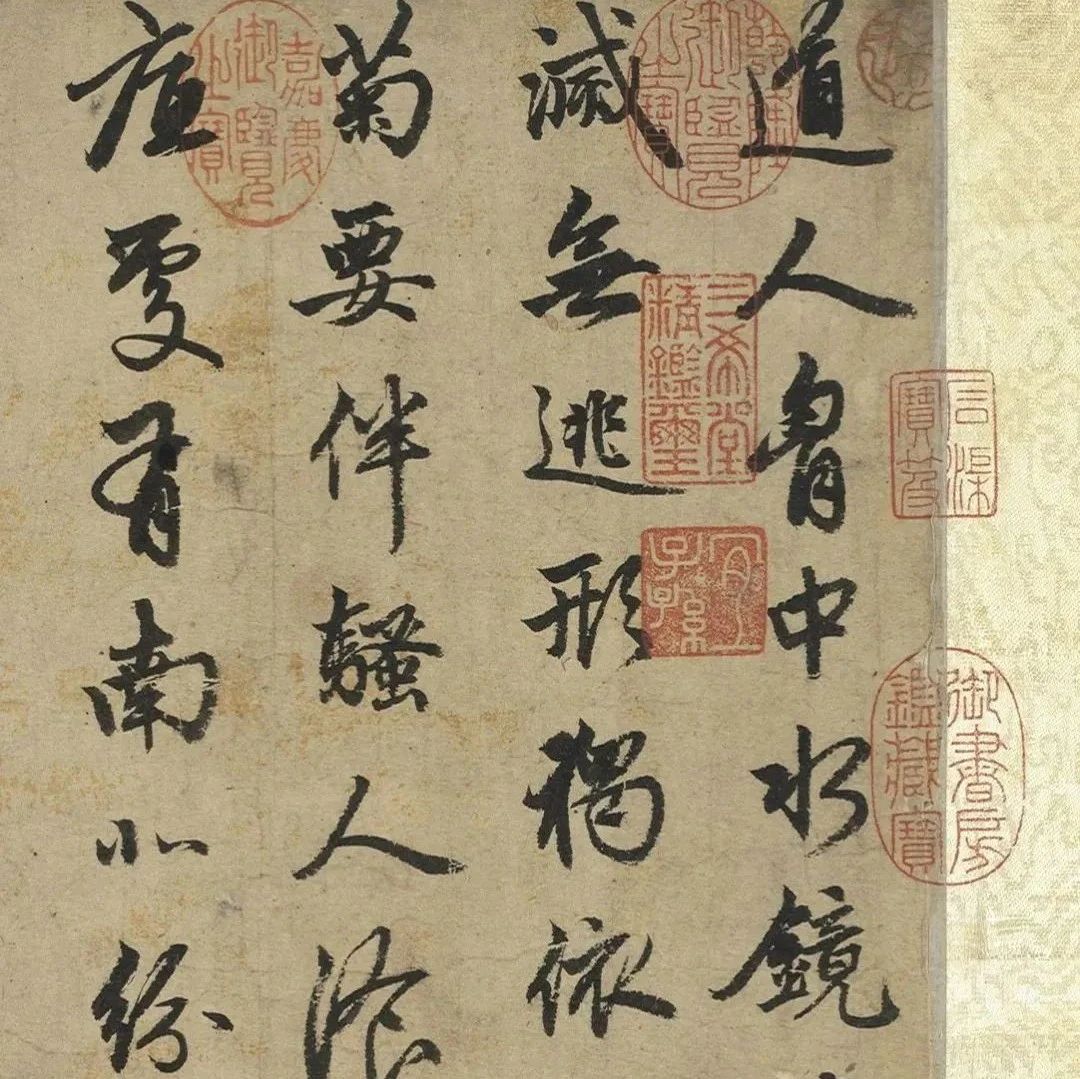 道人胷中水鏡
滅無逃形獨依
菊要伴騷人湌
底處有南北紛
石渠寶笈
御書房鑑藏寶
乾隆御覽之寶
三希堂精鑑璽
宜子孫
嘉慶御覽之寶